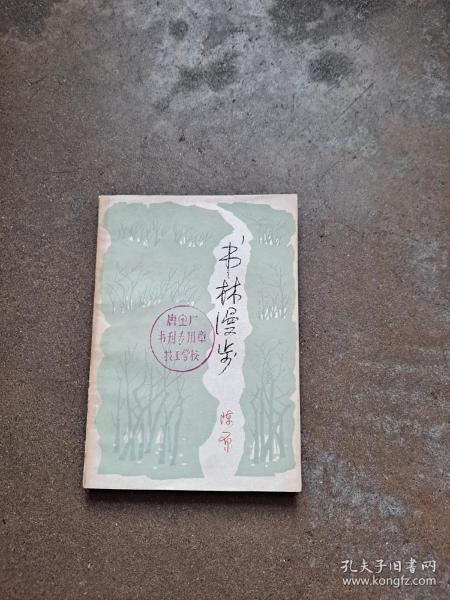 书林漫步
陈原
唐全厂
书刊专用章
技工学校
孔夫子旧书网
www.kongfz.com